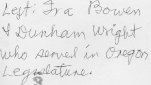 Left: Ira Bowen
& Dunham Wright
who served in Oregon
Legislature.